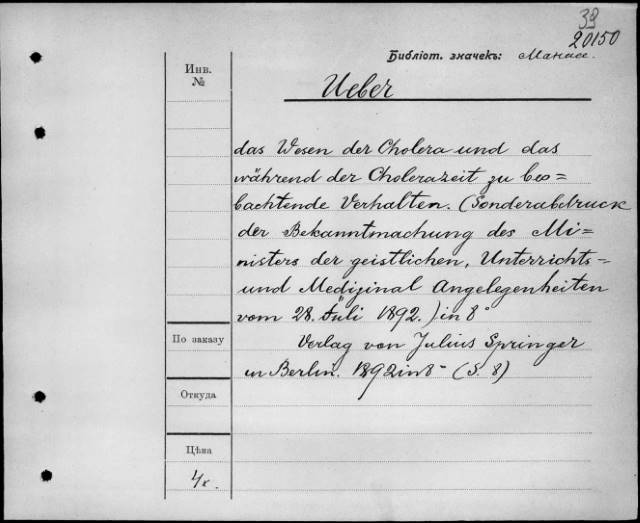 39
20150
Библіот. значекъ:
Инв.
№
Ueber
das Wesen der Cholera und das
während der Cholerazeit zu beo=
bachtende Verhalten. (Sonderabdruck
der Bekanntmachung des Mi=
nisters der geistlichen, Unterrichts=
und Medizinal Angelegenheiten
vom 28. Juli 1892.) in 8°
По заказу
Verlag von Julius Springer
in Berlin. 1892 in 8- (S. 8)
Откуда
Цѣна